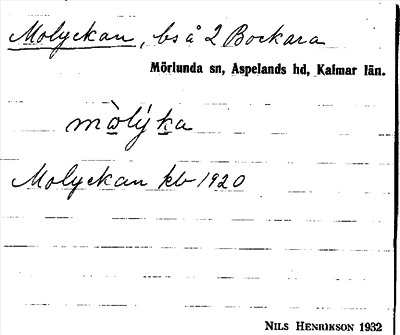 Molyckan, bs å 2 Bockara
Mörlunda sn, Aspelands hd, Kalmar län.
mòlýka
Molyckan kb 1920
NILS HENRIKSON 1932